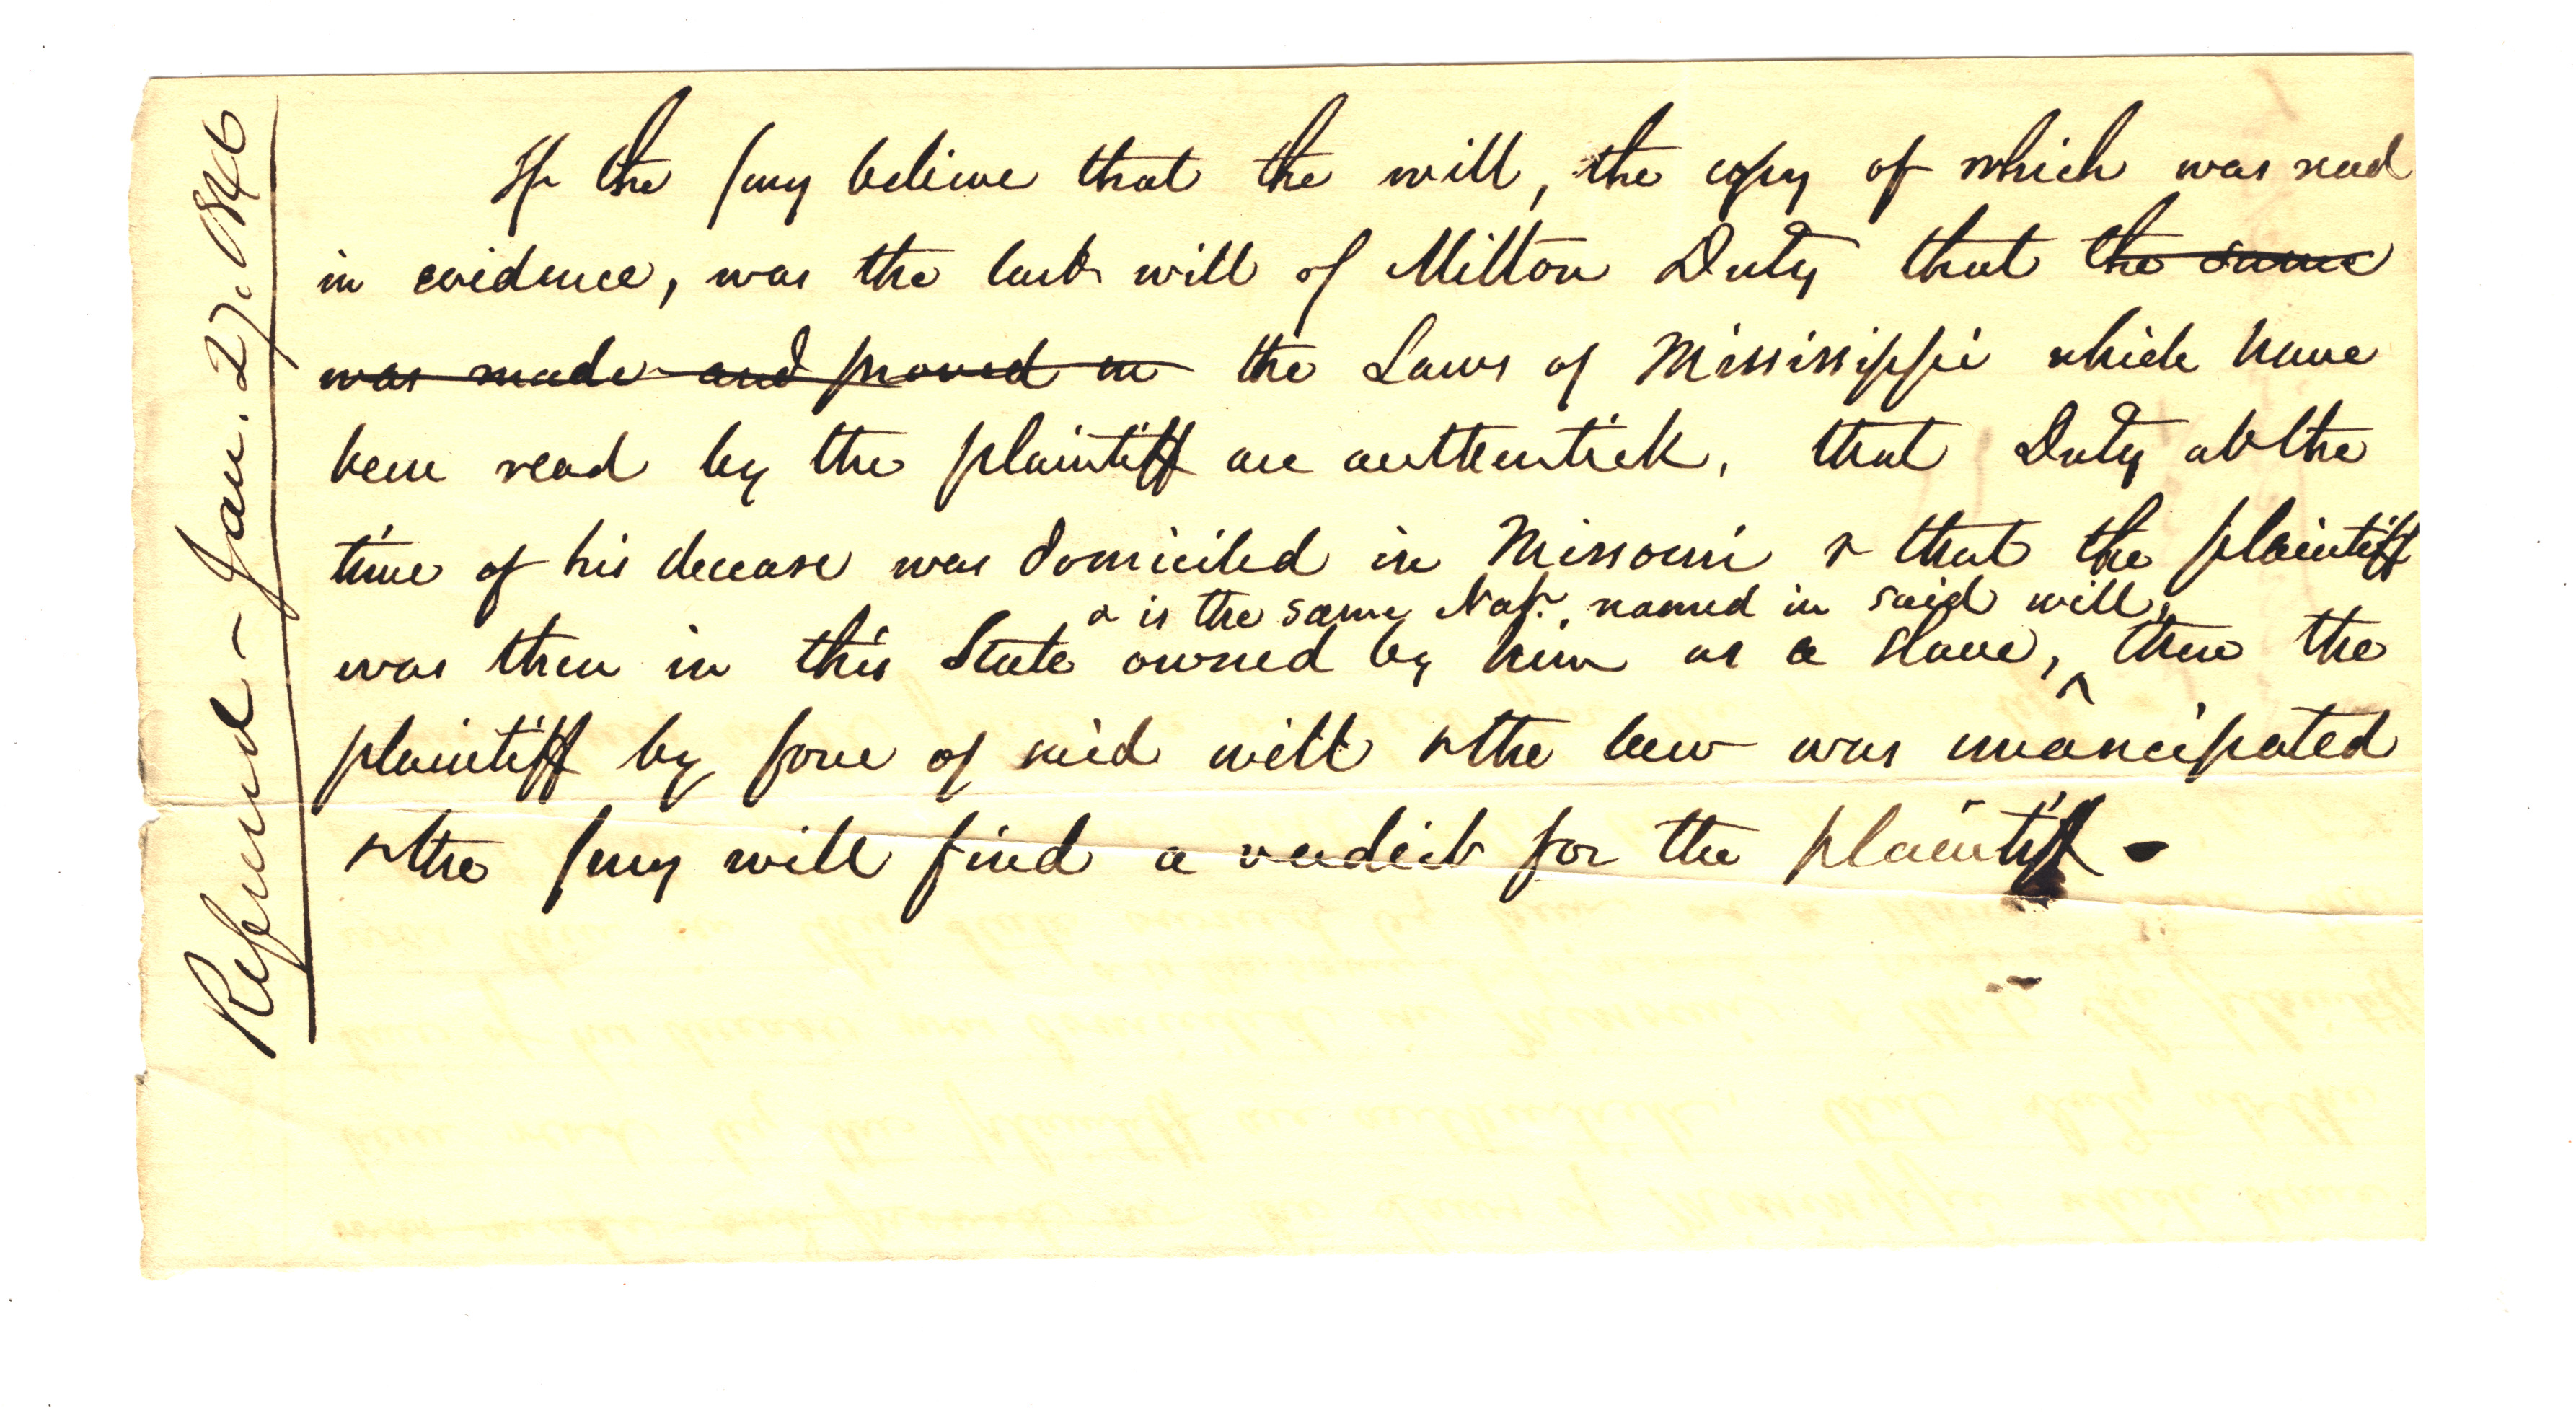 Refused - Jan. 27. 1846
If the jury believe that the will, the copy of which was read
in evidence, was the last will of Milton Duty that the same
was made and proved in the Laws of Mississippi which have
been read by the plaintiff are authentick, that Duty at the
time of his decease was domiciled in Missouri & that the plaintiff
& is the same Nap. named in said will,
was then in this State owned by him as a slave, ^ then the
plaintiff by force of said will & the law was emancipated
& the jury will find a verdict for the plaintiff -